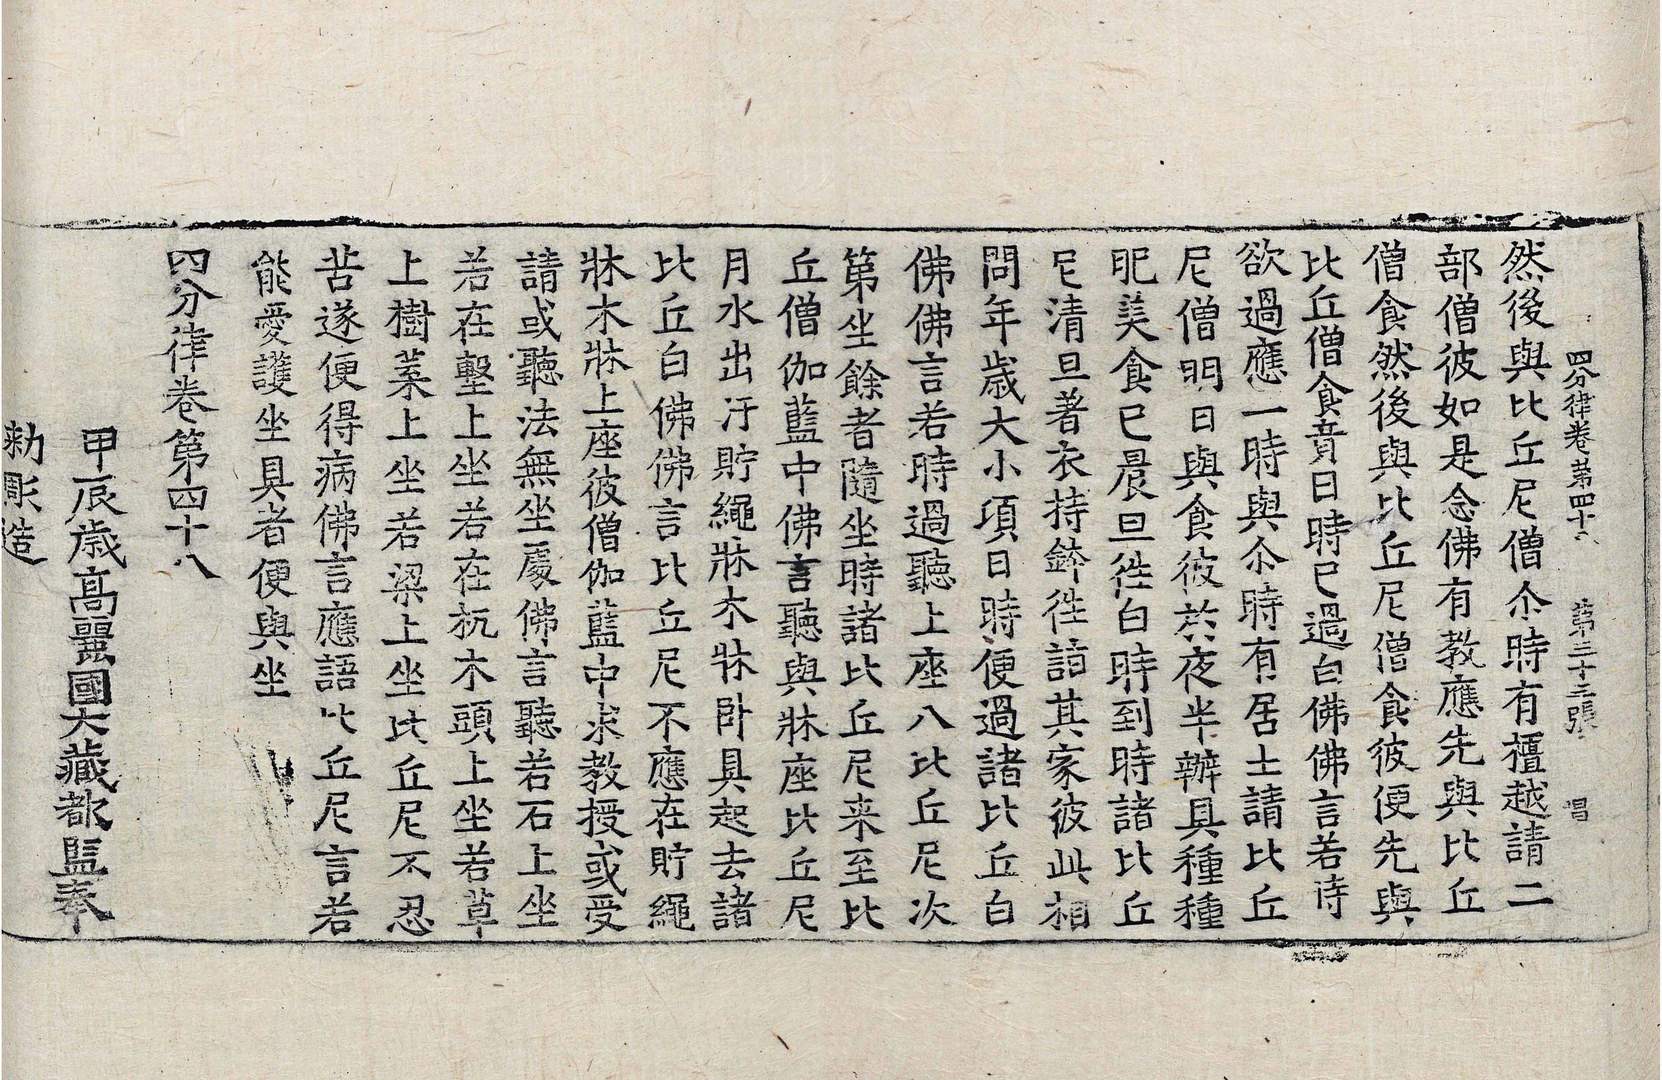 四分律卷第四十八　第三十三張　唱
然後與比丘尼僧尒時有檀越請二
部僧彼如是念佛有教應先與比丘
僧食然後與比丘尼僧食彼便先與
比丘僧食竟日時已過白佛佛言若時
欲過應一時與尒時有居士請比丘
尼僧明日與食彼於夜半辦具種種
肥美食已晨旦徃白時到時諸比丘
尼清旦著衣持鉢徃詣其家彼此相
問年歳大小項日時便過諸比丘白
佛佛言若時過聽上座八比丘尼次
第坐餘者隨坐時諸比丘尼来至比
丘僧伽藍中佛言聽與牀座比丘尼
月水出汙貯繩牀木牀卧具起去諸
比丘白佛佛言比丘尼不應在貯繩
牀木牀上座彼僧伽藍中求教授或受
請或聽法無坐處佛言聽若石上坐
若在墼上坐若在杌木頭上坐若草
上樹葉上坐若梁上坐比丘尼不忍
苦遂便得病佛言應語比丘尼言若
能愛護坐具者便與坐
四分律卷第四十八
甲辰歳高麗國大藏都監奉
勑彫造